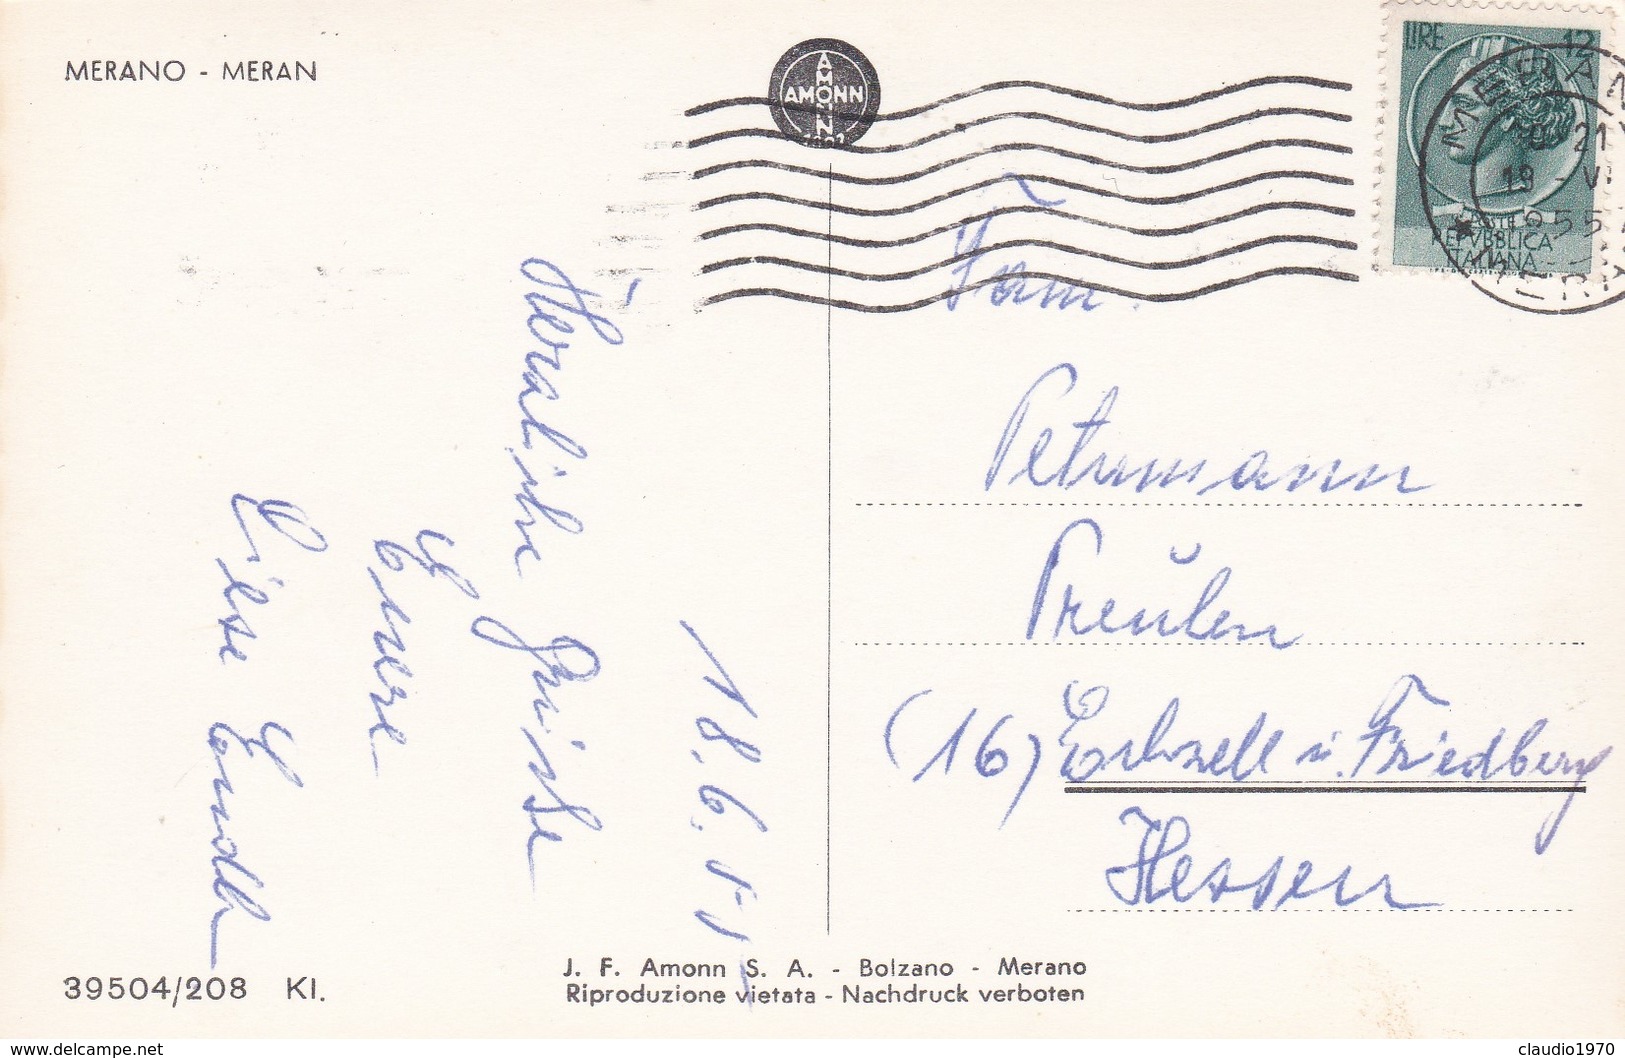 MERANO - MERAN
AMONN
LIRE 12
MERANO
21
18 - VI
1955
POSTE
REPVBBLICA
ITALIANA
MERA
18.6.55
Herzliche Grüsse
Eure
Liese
Fam.
Petermann
Preulen
(16) Echzell ü. Friedberg
Hessen
39504/208 Kl.
J. F. Amonn S. A. - Bolzano - Merano
Riproduzione vietata - Nachdruck verboten
www.delcampe.net
claudio1970